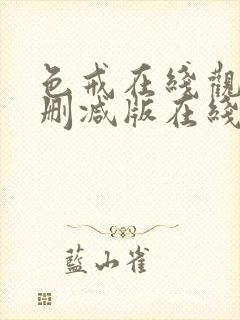 色戒在綫觀
刪减版在綫
藍小雀